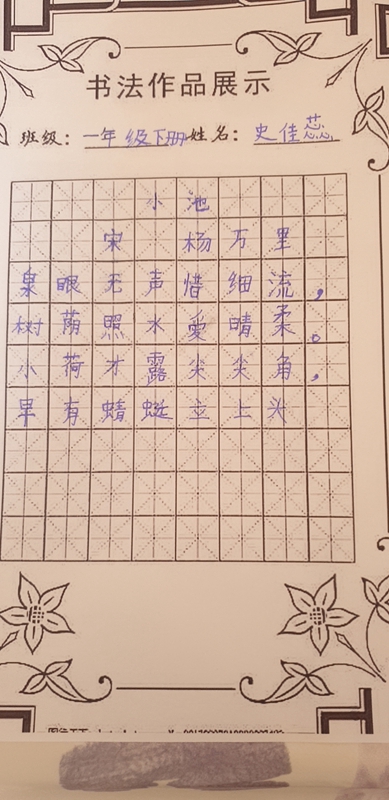 书法作品展示
班级：一年级下册姓名：史佳蕊
小池
宋 杨万里
泉眼无声惜细流，
树荫照水爱晴柔。
小荷才露尖尖角，
早有蜻蜓立上头